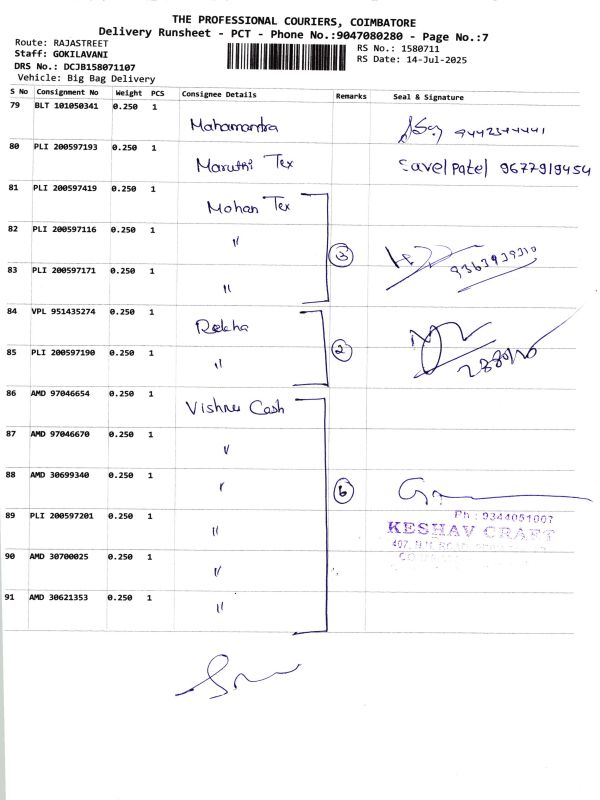 THE PROFESSIONAL COURIERS, COIMBATORE
Delivery Runsheet - PCT - Phone No.:9047080280 - Page No.:7
Route: RAJASTREET
Staff: GOKILAVANI
DRS No.: DCJB158071107
Vehicle: Big Bag Delivery
RS No.: 1580711
RS Date: 14-Jul-2025
S No Consignment No Weight PCS Consignee Details Remarks Seal & Signature
79 BLT 101050341 0.250 1 Mahamantra
80 PLI 200597193 0.250 1 Maruthi Tex 9677919454
81 PLI 200597419 0.250 1 Mohan Tex
82 PLI 200597116 0.250 1 " 3 9363939310
83 PLI 200597171 0.250 1 "
84 VPL 951435274 0.250 1 Rekha
85 PLI 200597190 0.250 1 " 2
86 AMD 97046654 0.250 1 Vishnu Cash
87 AMD 97046670 0.250 1 "
88 AMD 30699340 0.250 1 " 6
Ph : 9344051007
KESHAV CRAFT
89 PLI 200597201 0.250 1 "
90 AMD 30700025 0.250 1 "
91 AMD 30621353 0.250 1 "